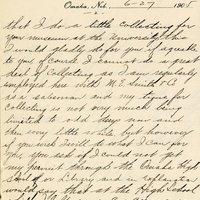 Omaha, Neb. 6-27 1905
-2-
that I do a little collecting for
your museum at the University this
I would gladly do for you if agreeable
to you of course I cannot do a great
deal of collecting as I am regularly
employed here with M.E. Smith & Co
as salesman so my time for
collecting is not very much been
limited to odd days now and
then very little while but however
if you wish I will do what I can for
you, you ask if I could not get
my permit through the Omaha High
School or Library and in reply
would say that at the High School